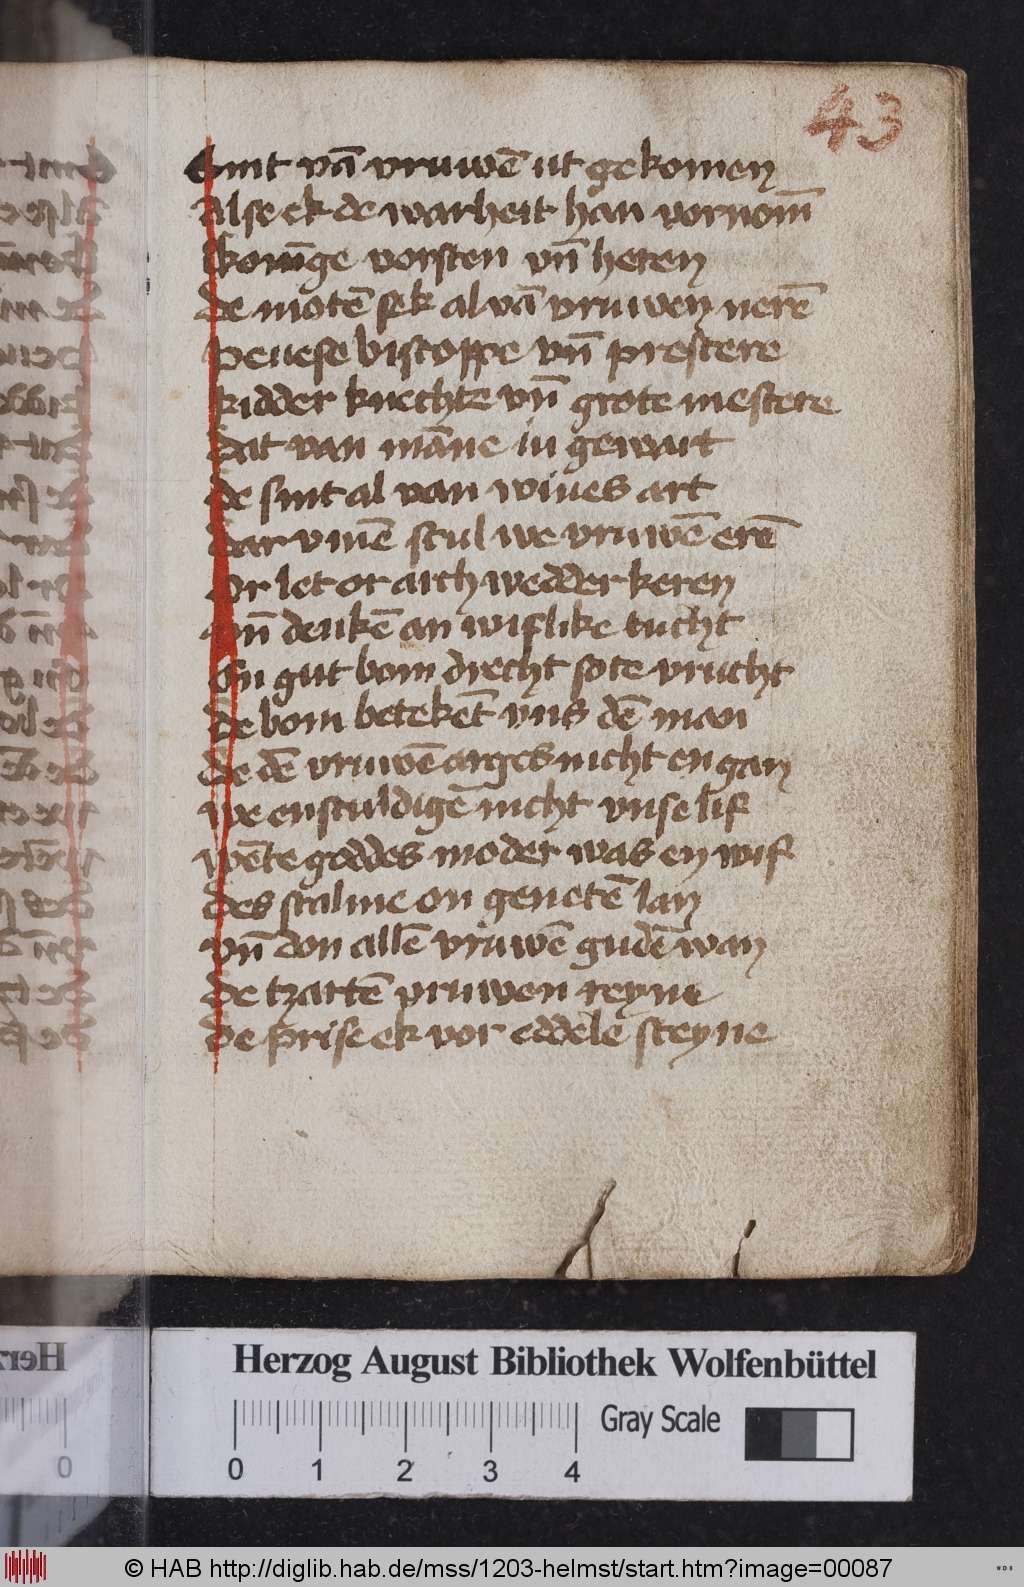 43
Sint vā vruwē ut gekomen
Alse ek de warheit han vornom̄
konīge vorsten vn̄ heren
de motē sek al vā vruwen nerē
peuese biscoppe vn̄ prestere
Ridder knechte vn̄ grote mestere
dat van māne iu gewart
de sint al van wiues art
dar vmē scul we vruwē erē
Or let or arch wedder keren
vn̄ denkē an wiflike tucht
En gut bom drecht sote vrucht
de bom betekēt vns dē man
de dē vruwē arges nicht en gan
we enscůldigē nicht vnse lif
wēte goddes moder was en wif
des scal me on genetē lan
vn̄ don allē vruwē gudē wan
de tzartē vruwen reyne
de prise ek vor eddele steyne
Herzog August Bibliothek Wolfenbüttel
Gray Scale
0 1 2 3 4
© HAB http://diglib.hab.de/mss/1203-helmst/start.htm?image=00087